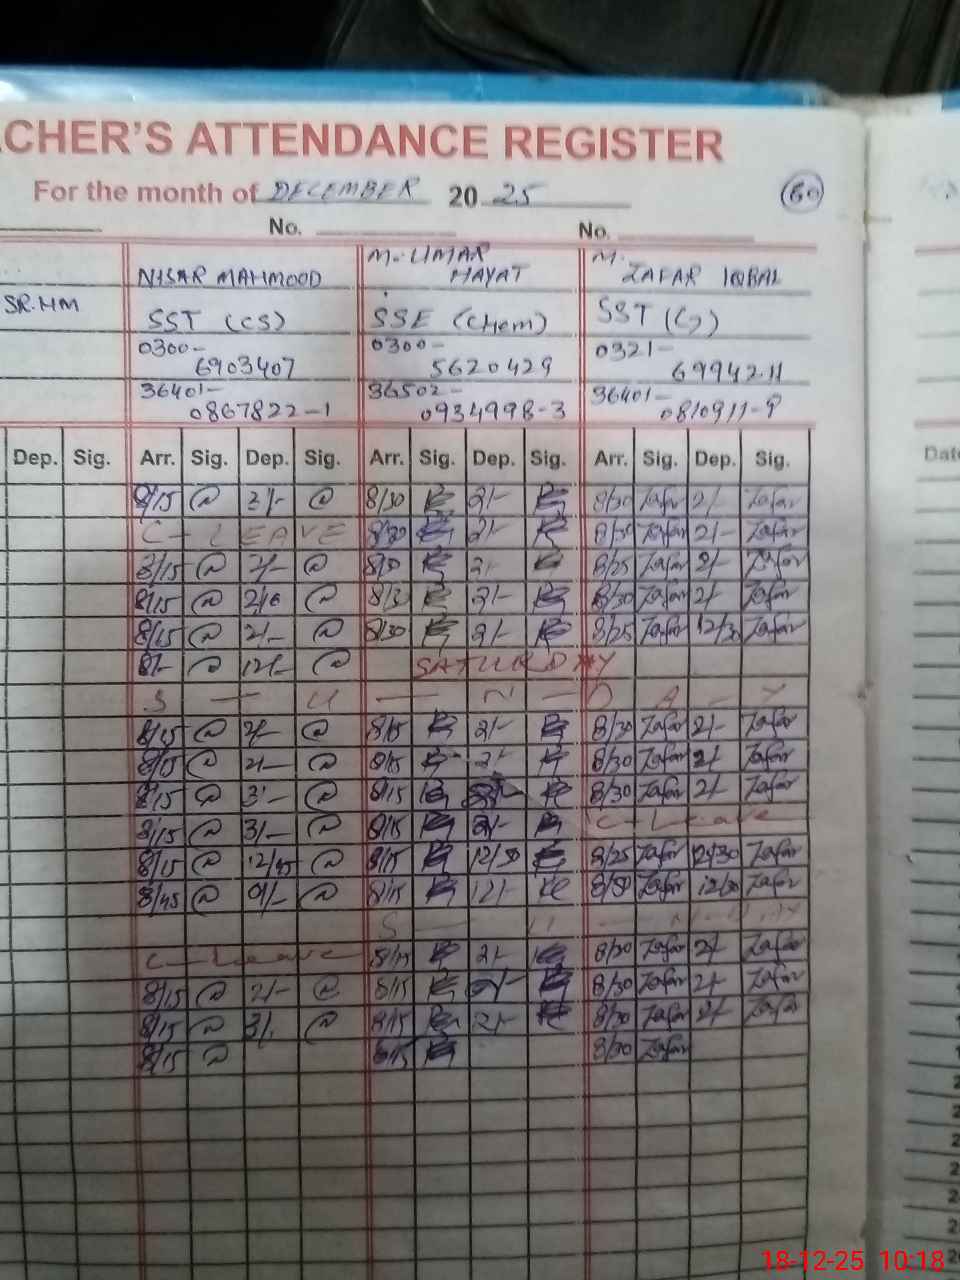 CHER'S ATTENDANCE REGISTER
For the month of DECEMBER 20 25
60
No. No.
NISAR MAHMOOD M. UMAR HAYAT M. ZAFAR IQBAL
SR.HM SST (CS) SSE (Chem) SST (G)
0300-6903407 0300-5620429 0321-6994211
36401-0867822-1 36502-0934998-3 36401-0810911-9
Dep. Sig. Arr. Sig. Dep. Sig. Arr. Sig. Dep. Sig. Arr. Sig. Dep. Sig. Date
8/15 8/30 2/- 8/30 Zafar 2/- Zafar
C-LEAVE 8/30 2/- 8/30 Zafar 2/- Zafar
8/15 2/- 2/- 8/25 Zafar 2/- Zafar
8/15 8/30 2/- 8/30 Zafar 2/- Zafar
8/15 2/- 8/30 2/- 8/25 Zafar 12/30 Zafar
12/- SATURDAY
S - U - N - D A - Y
8/15 2/- 8/15 2/- 8/30 Zafar 2/- Zafar
8/15 2/- 8/15 2/- 8/30 Zafar 2/- Zafar
8/15 3/- 8/15 8/30 Zafar 2/- Zafar
8/15 3/- 8/15 2/- C-Leave
8/15 12/45 8/15 12/30 8/25 Zafar 12/30 Zafar
8/45 8/15 12/- Zafar 12/30 Zafar
S - U - N-D-AY
C-Leave 8/15 2/- 8/30 Zafar 2/- Zafar
8/15 2/- 8/15 2/- 8/30 Zafar 2/- Zafar
8/15 3/- 8/15 2/- 8/30 Zafar 2/- Zafar
8/15 8/15 8/30 Zafar
18-12-25 10:18